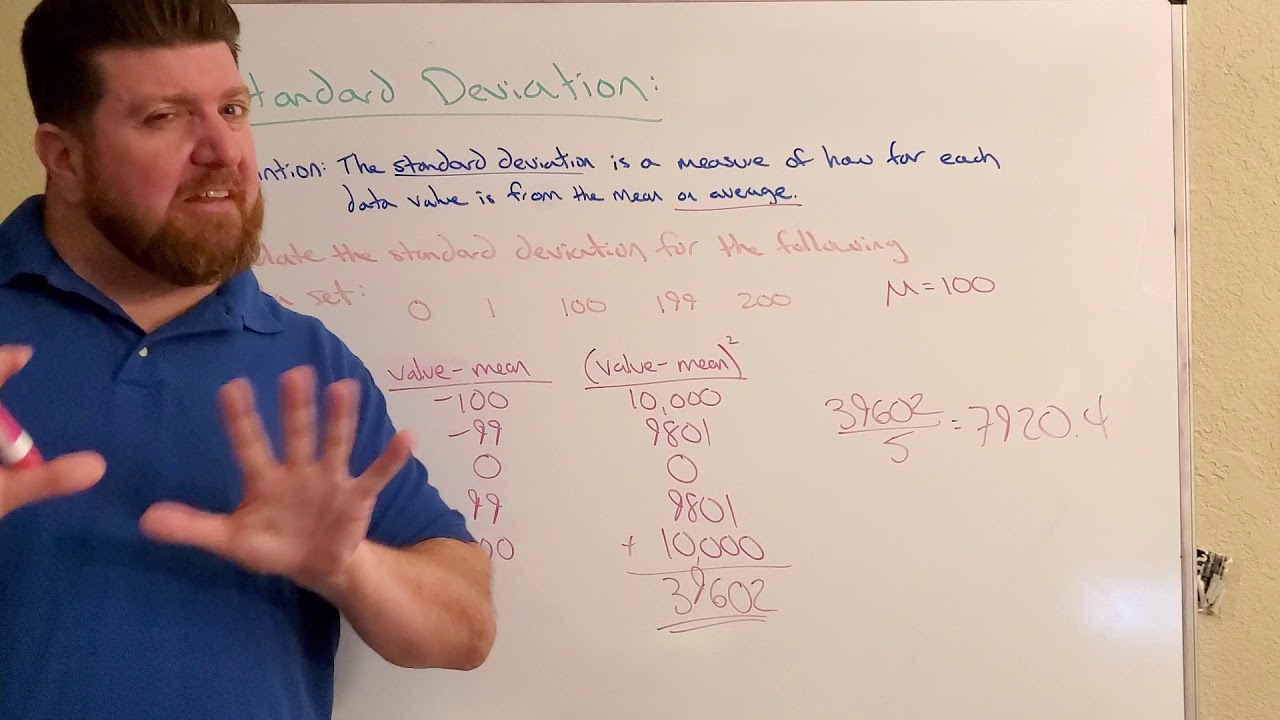 tandard Deviation:
intion: The standard deviation is a measure of how far each
data value is from the mean or average.
late the standard deviation for the following
set: 0 1 100 199 200 μ=100
value-mean (value-mean)²
-100 10,000
-99 9801
0 0
99 9801
00 + 10,000
39602
39602/5 = 7920.4